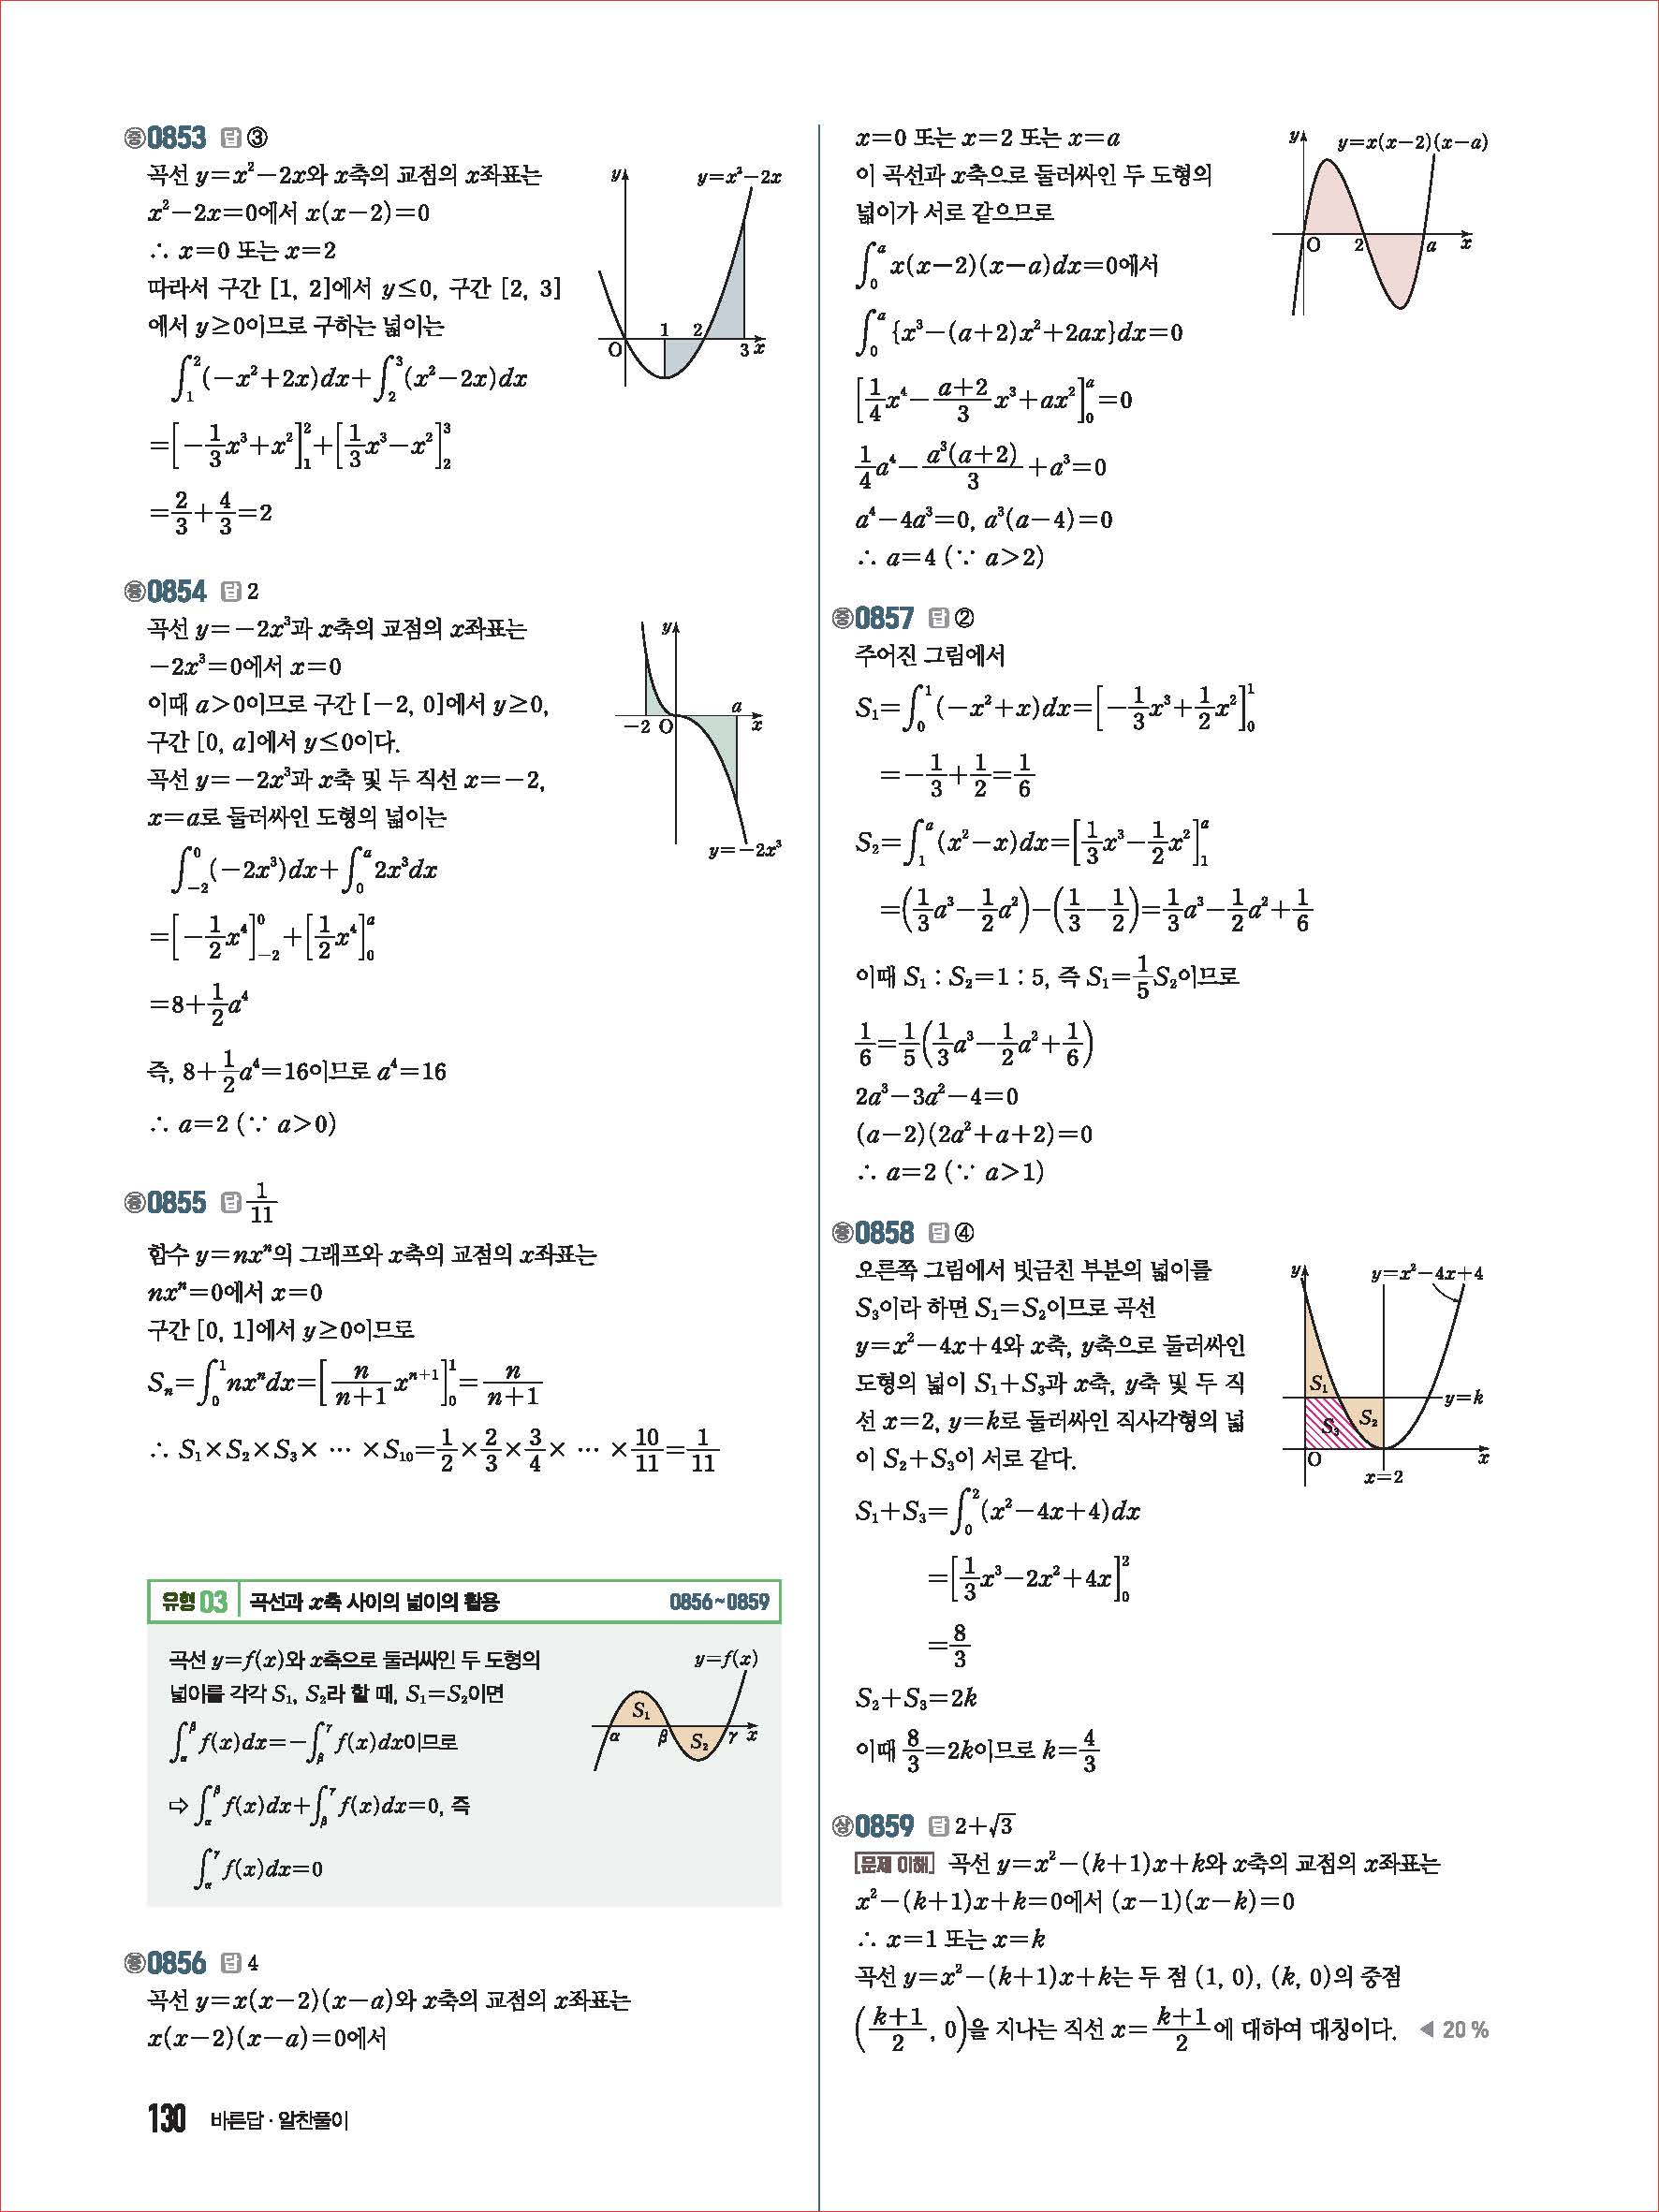 중 0853 답 ③
곡선 y=x²-2x와 x축의 교점의 x좌표는
x²-2x=0에서 x(x-2)=0
∴ x=0 또는 x=2
따라서 구간 [1, 2]에서 y≤0, 구간 [2, 3]
에서 y≥0이므로 구하는 넓이는
∫₁²(-x²+2x)dx+∫₂³(x²-2x)dx
=[-1/3x³+x²]₁²+[1/3x³-x²]₂³
=2/3+4/3=2
y
y=x²-2x
1 2
O 3 x
중 0854 답 2
곡선 y=-2x³과 x축의 교점의 x좌표는
-2x³=0에서 x=0
이때 a>0이므로 구간 [-2, 0]에서 y≥0,
구간 [0, a]에서 y≤0이다.
곡선 y=-2x³과 x축 및 두 직선 x=-2,
x=a로 둘러싸인 도형의 넓이는
∫₋₂⁰(-2x³)dx+∫₀ᵃ2x³dx
=[-1/2x⁴]₋₂⁰+[1/2x⁴]₀ᵃ
=8+1/2a⁴
즉, 8+1/2a⁴=16이므로 a⁴=16
∴ a=2 (∵ a>0)
y
a
-2 O x
y=-2x³
중 0855 답 1/11
함수 y=nxⁿ의 그래프와 x축의 교점의 x좌표는
nxⁿ=0에서 x=0
구간 [0, 1]에서 y≥0이므로
Sₙ=∫₀¹nxⁿdx=[n/(n+1) xⁿ⁺¹]₀¹=n/(n+1)
∴ S₁×S₂×S₃× … ×S₁₀=1/2×2/3×3/4× … ×10/11=1/11
유형 03 곡선과 x축 사이의 넓이의 활용 0856~0859
곡선 y=f(x)와 x축으로 둘러싸인 두 도형의
넓이를 각각 S₁, S₂라 할 때, S₁=S₂이면
∫_α^β f(x)dx=-∫_β^γ f(x)dx이므로
⇨ ∫_α^β f(x)dx+∫_β^γ f(x)dx=0, 즉
∫_α^γ f(x)dx=0
y=f(x)
S₁
α β S₂ γ x
중 0856 답 4
곡선 y=x(x-2)(x-a)와 x축의 교점의 x좌표는
x(x-2)(x-a)=0에서
130 바른답·알찬풀이
x=0 또는 x=2 또는 x=a
이 곡선과 x축으로 둘러싸인 두 도형의
넓이가 서로 같으므로
∫₀ᵃ x(x-2)(x-a)dx=0에서
∫₀ᵃ {x³-(a+2)x²+2ax}dx=0
[1/4x⁴-(a+2)/3 x³+ax²]₀ᵃ=0
1/4a⁴-a³(a+2)/3+a³=0
a⁴-4a³=0, a³(a-4)=0
∴ a=4 (∵ a>2)
y
y=x(x-2)(x-a)
O 2 a x
중 0857 답 ②
주어진 그림에서
S₁=∫₀¹(-x²+x)dx=[-1/3x³+1/2x²]₀¹
=-1/3+1/2=1/6
S₂=∫₁ᵃ(x²-x)dx=[1/3x³-1/2x²]₁ᵃ
=(1/3a³-1/2a²)-(1/3-1/2)=1/3a³-1/2a²+1/6
이때 S₁ : S₂=1 : 5, 즉 S₁=1/5S₂이므로
1/6=1/5(1/3a³-1/2a²+1/6)
2a³-3a²-4=0
(a-2)(2a²+a+2)=0
∴ a=2 (∵ a>1)
중 0858 답 ④
오른쪽 그림에서 빗금친 부분의 넓이를
S₃이라 하면 S₁=S₂이므로 곡선
y=x²-4x+4와 x축, y축으로 둘러싸인
도형의 넓이 S₁+S₃과 x축, y축 및 두 직
선 x=2, y=k로 둘러싸인 직사각형의 넓
이 S₂+S₃이 서로 같다.
S₁+S₃=∫₀²(x²-4x+4)dx
=[1/3x³-2x²+4x]₀²
=8/3
S₂+S₃=2k
이때 8/3=2k이므로 k=4/3
y
y=x²-4x+4
S₁
y=k
S₃ S₂
O x
x=2
상 0859 답 2+√3
[문제 이해] 곡선 y=x²-(k+1)x+k와 x축의 교점의 x좌표는
x²-(k+1)x+k=0에서 (x-1)(x-k)=0
∴ x=1 또는 x=k
곡선 y=x²-(k+1)x+k는 두 점 (1, 0), (k, 0)의 중점
((k+1)/2, 0)을 지나는 직선 x=(k+1)/2에 대하여 대칭이다. ◀ 20 %